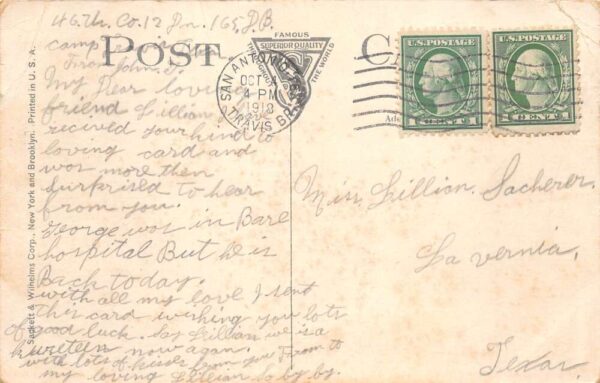 46th. Co. 12 Pn. 165, D.B.
camp
From John. J.
POST
FAMOUS
SUPERIOR QUALITY
THE WORLD
SAN ANTONIO, TEX.
OCT
4 PM
1918
TRAVIS BR.
U.S. POSTAGE
1 CENT 1
U.S. POSTAGE
1 CENT 1
My Dear loving
friend Lillian I
recived your kind to
loving card and
was more then
surprised to hear
from you.
George was in Base
hospital But he is
Back today.
with all my love I sent
This card wishing you lots
of good luck. Say Lillian we is a
kureteen now again.
with lots of kisses from you From to
my loving Lillian So by by.
Miss. Lillian. Sacherer.
La vernia,
Texas
Sackett & Wilhelms Corp., New York and Brooklyn. Printed in U. S. A.